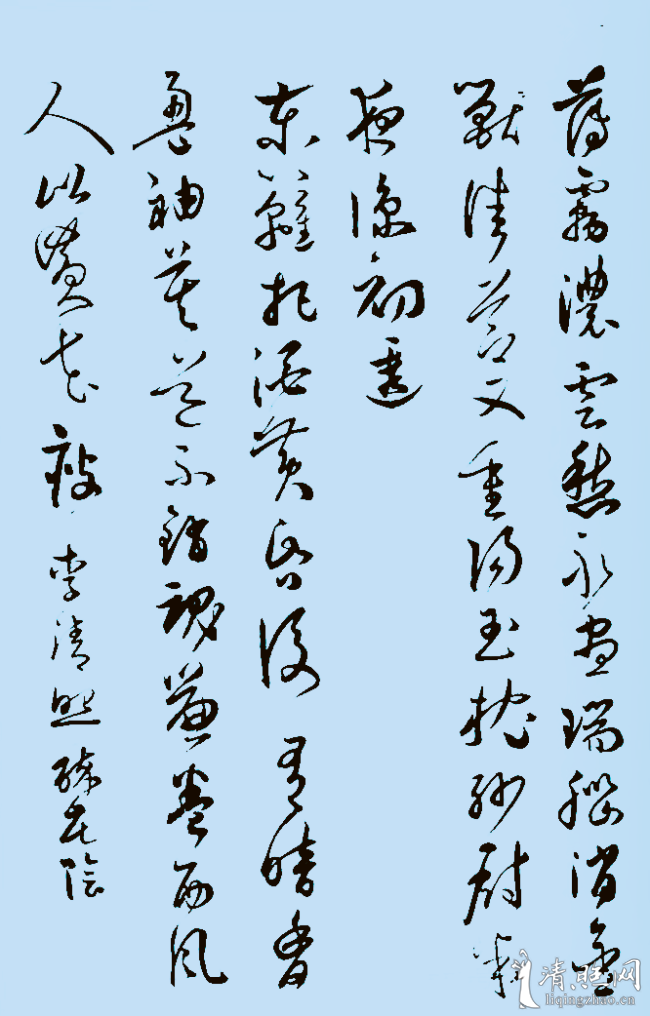 薄霧濃雲愁永晝瑞腦消金
獸佳節又重陽玉枕紗廚半
夜涼初透
東籬把酒黃昏後有暗香
盈袖莫道不銷魂簾卷西風
人比黃花瘦 李清照醉花陰
清照网
liqingzhao.cn